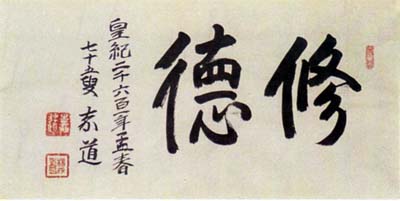 修德
皇紀二千六百年孟春
七十五叟 素道